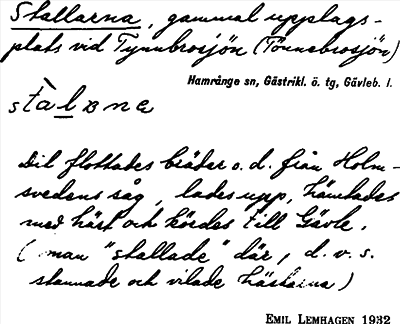 Stallarna, gammal upplags-
plats vid Tynnbrosjön (Tönnebrosjön)
Hamrånge sn, Gästrikl. ö. tg, Gävleb. l.
Dit flottades bräder o. d. från Holm-
svedens såg, lades upp, hämtades
med häst och kördes till Gävle.
(man "stallade" där, d. v. s.
stannade och vilade hästarna)
EMIL LEMHAGEN 1932